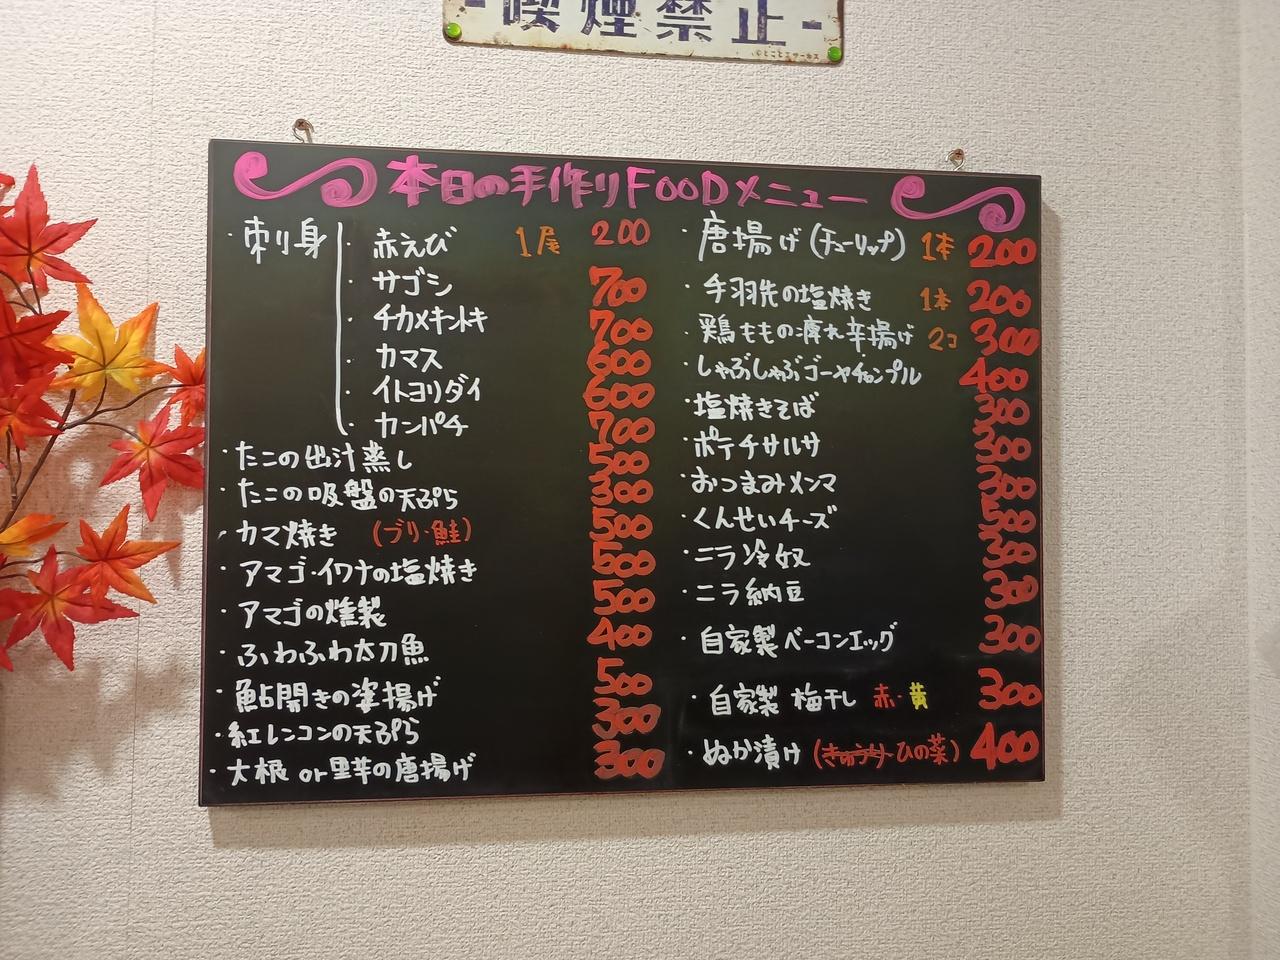 -喫煙禁止-
©とことこサーカス
本日の手作りFOODメニュー
・刺り身 ・赤えび 1尾 200
・サゴシ 700
・チカメキントキ 700
・カマス 600
・イトヨリダイ 600
・カンパチ 700
・たこの出汁蒸し 500
・たこの吸盤の天ぷら 300
・カマ焼き (ブリ・鮭) 500
・アマゴ・イワナの塩焼き 500
・アマゴの燻製 500
・ふわふわ太刀魚 400
・鮎開きの姿揚げ 500
・紅レンコンの天ぷら 300
・大根 or 里芋の唐揚げ 300
・唐揚げ(チューリップ) 1本 200
・手羽先の塩焼き 1本 200
・鶏ももの痺れ辛揚げ 2コ 300
・しゃぶしゃぶゴーヤチャンプル 400
・塩焼きそば 300
・ポテチサルサ 300
・おつまみメンマ 300
・くんせいチーズ 500
・ニラ冷奴 300
・ニラ納豆 300
・自家製ベーコンエッグ 300
・自家製 梅干し 赤・黄 300
・ぬか漬け (きゅうり ひの菜) 400